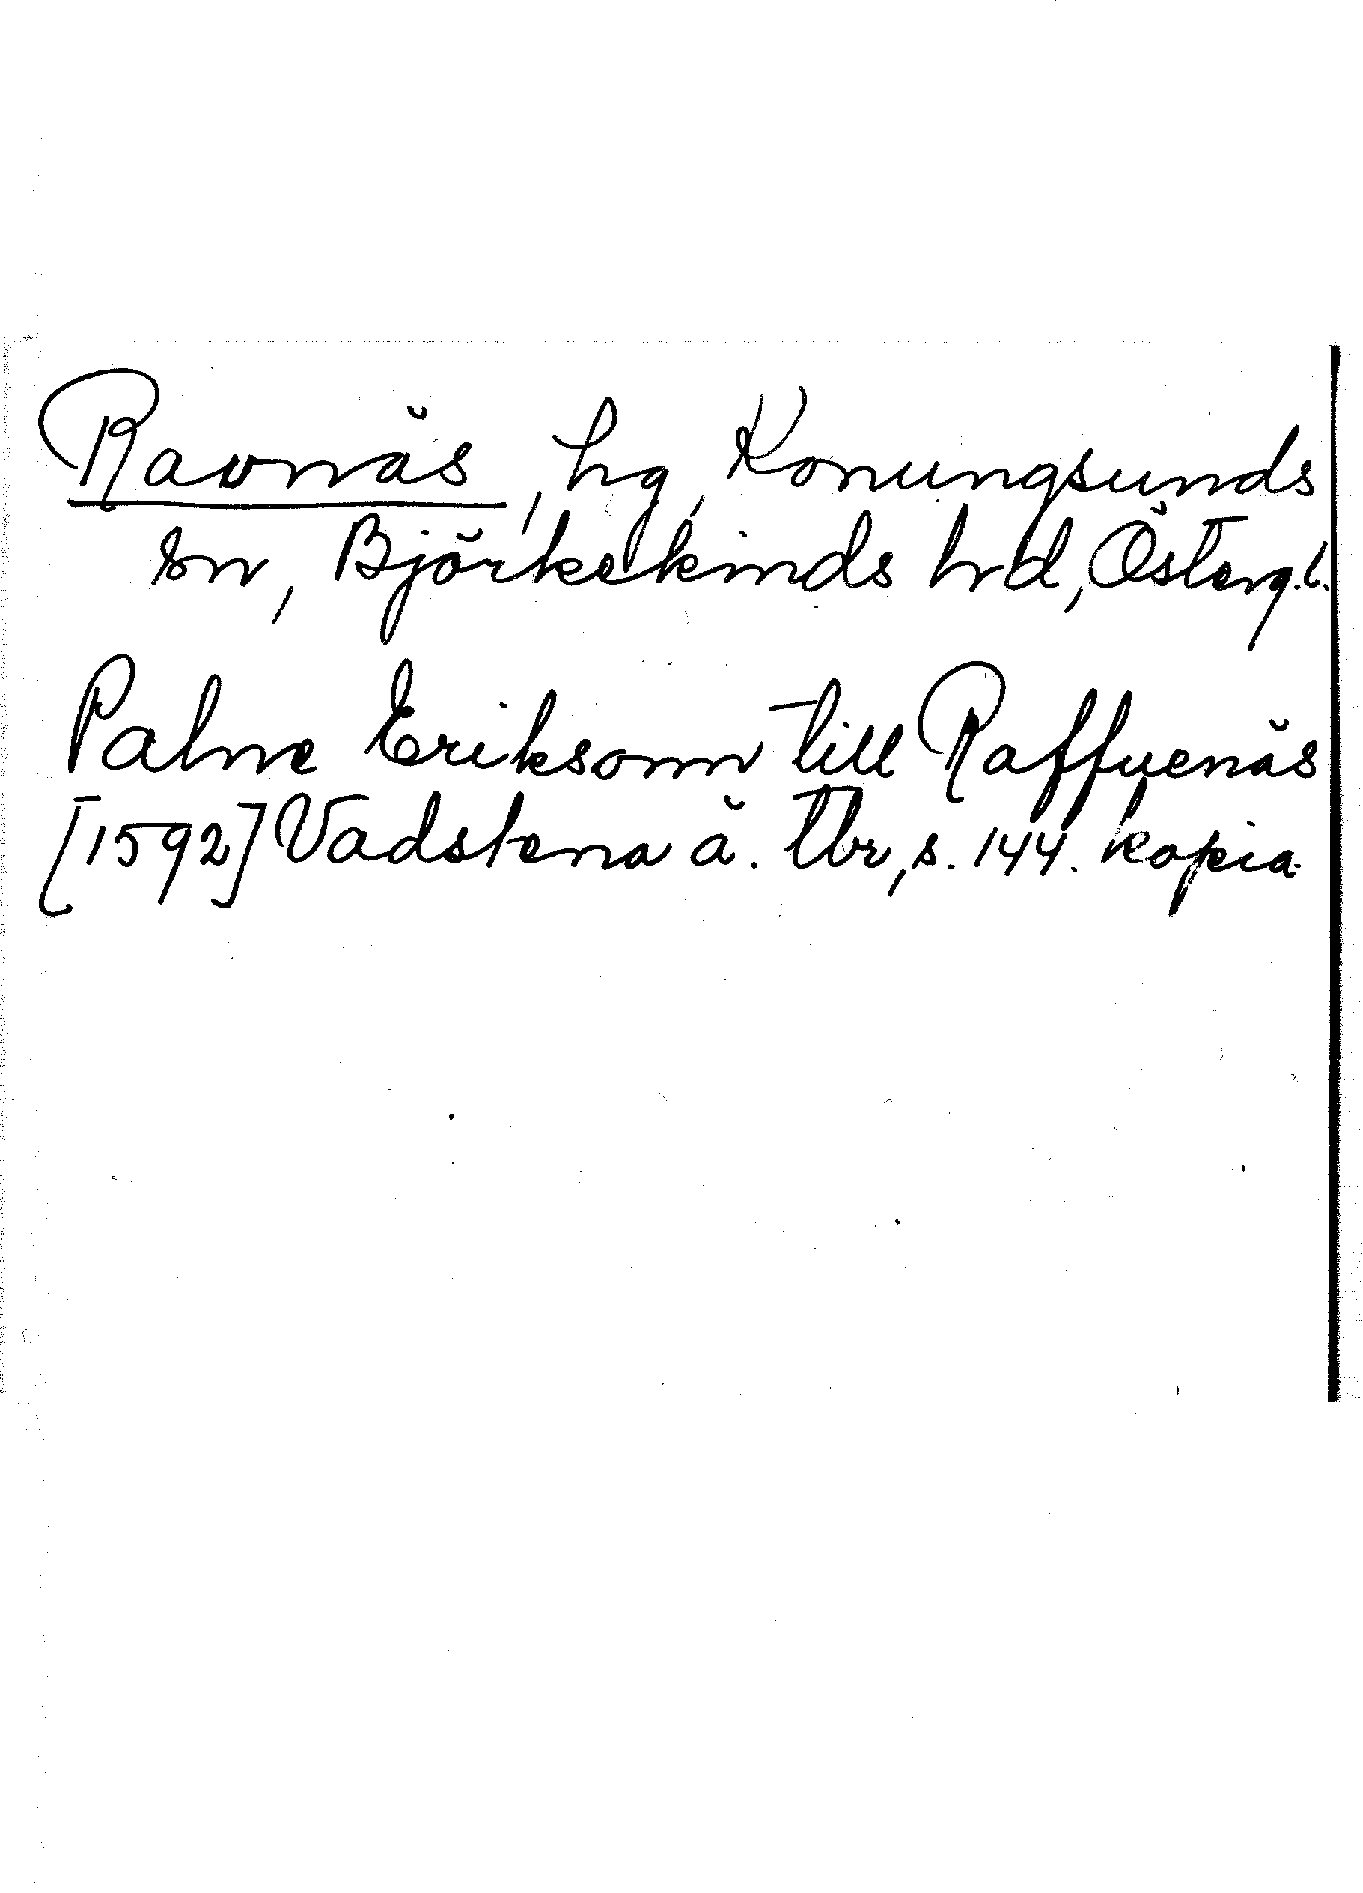 Ravnäs, hg, Konungsunds
sn, Björkekinds hrd, Österg.l.
Palne Eriksonn till Raffuenäs
[1592] Vadstena ä. tbr, s. 144. kopia.